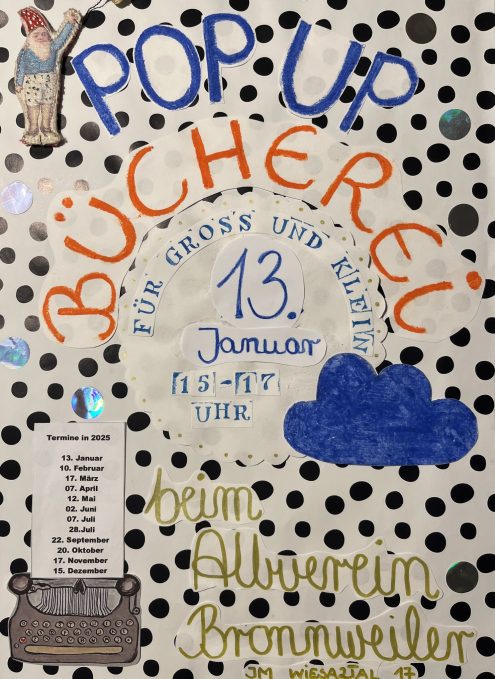 POP UP
BÜCHEREI
FÜR GROSS UND KLEIN
13.
Januar
15-17
UHR
Termine in 2025
13. Januar
10. Februar
17. März
07. April
12. Mai
02. Juni
07. Juli
28.Juli
22. September
20. Oktober
17. November
15. Dezember
beim
Albverein
Bronnweiler
IM WIESAZTAL 17